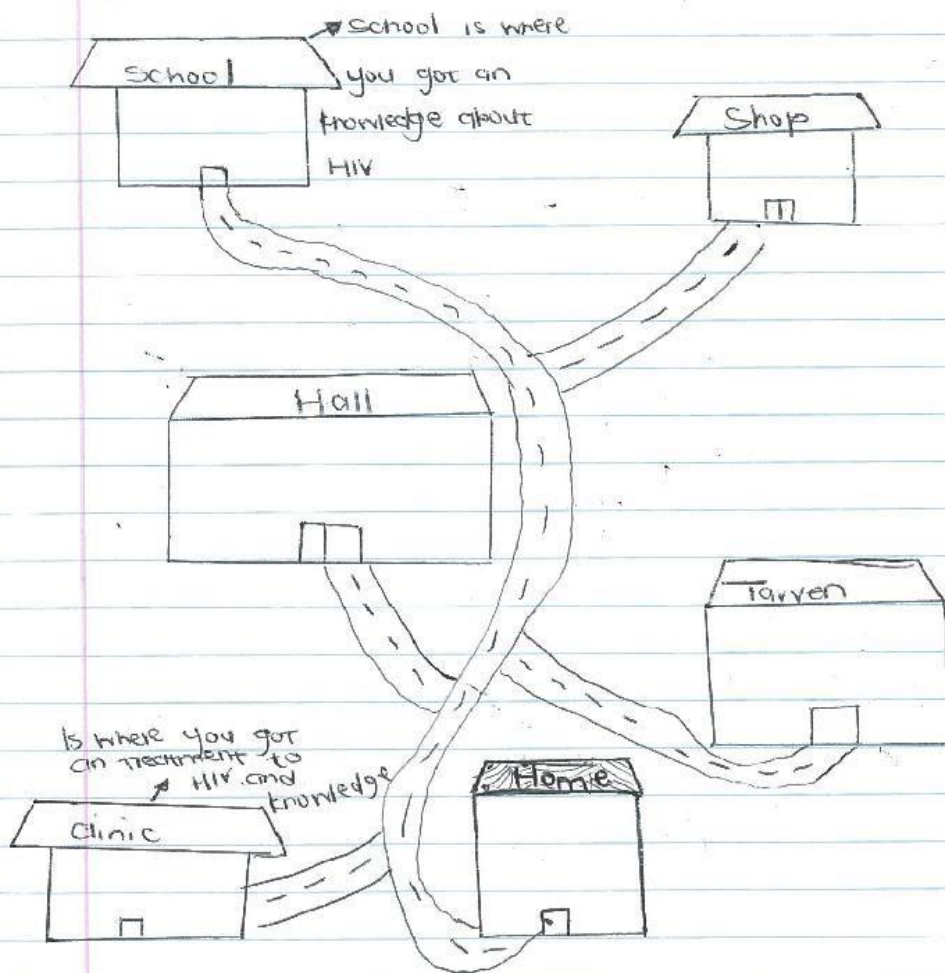 School is where
School
you got an
knowledge about
HIV
Shop
Hall
Tarven
Is where you got
an treatment to
HIV and
knowledge
Clinic
Home